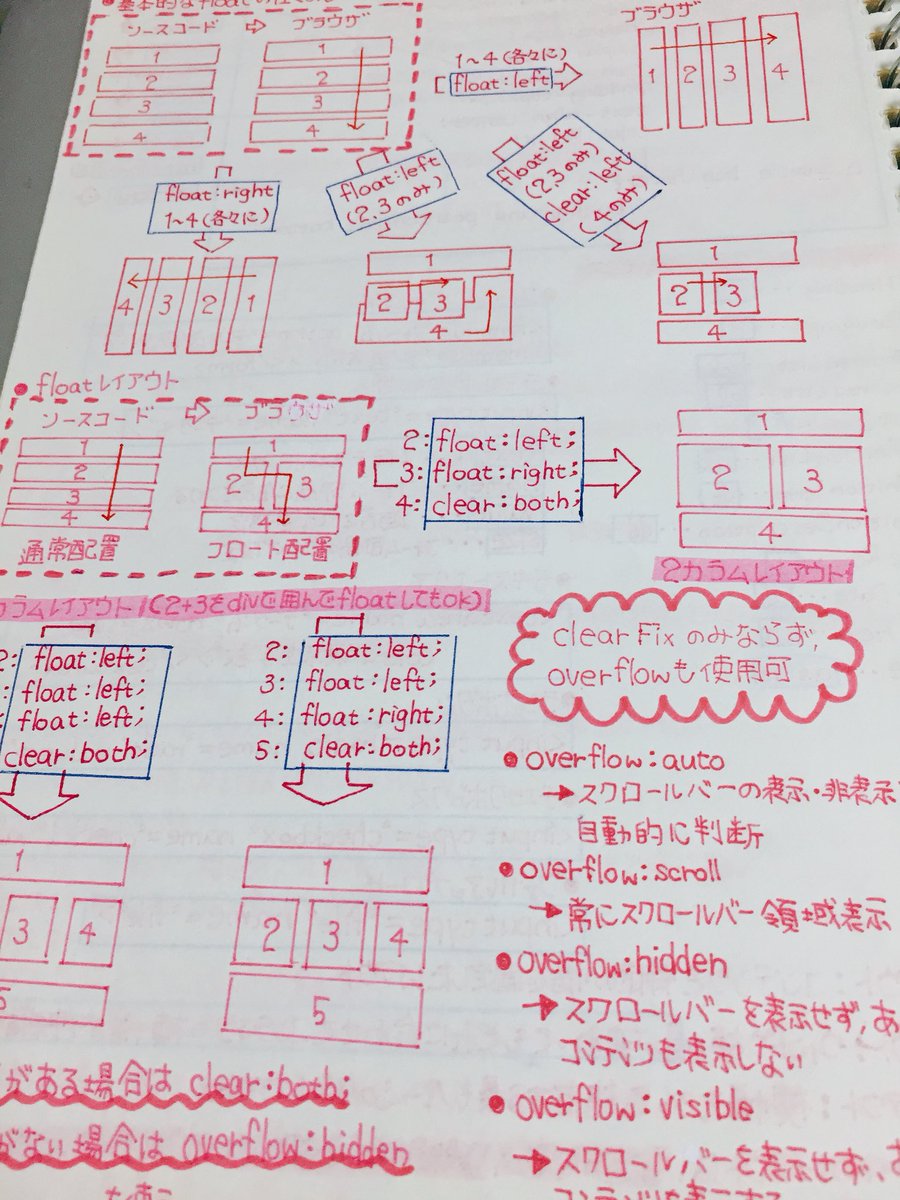 基本的なfloatの
ソースコード ⇨ ブラウザ
1
2
3
4
1
2
3
4
1~4(各々に)
float:left
ブラウザ
1 2 3 4
float:right
1~4(各々に)
float:left
(2,3のみ)
float:left
(2,3のみ)
clear:left;
(4のみ)
4 3 2 1
1
2 3
4
1
2 3
4
●floatレイアウト
ソースコード ⇨ ブラウザ
1
2
3
4
通常配置
1
2 3
4
フロート配置
2:float:left;
3:float:right;
4:clear:both;
1
2 3
4
2カラムレイアウト
カラムレイアウト(2+3をdivで囲んでfloatしてもok)
2: float:left;
: float:left;
: float:left;
clear:both;
2: float:left;
3: float:left;
4: float:right;
5: clear:both;
1
3 4
5
1
2 3 4
5
clearFixのみならず,
overflowも使用可
●overflow:auto
→スクロールバーの表示・非表示
自動的に判断
●overflow:scroll
→常にスクロールバー領域表示
●overflow:hidden
→スクロールバーを表示せず,あ
コンテンツも表示しない
●overflow:visible
→スクロールバーを表示せず,
がある場合は clear:both;
がない場合は overflow:hidden